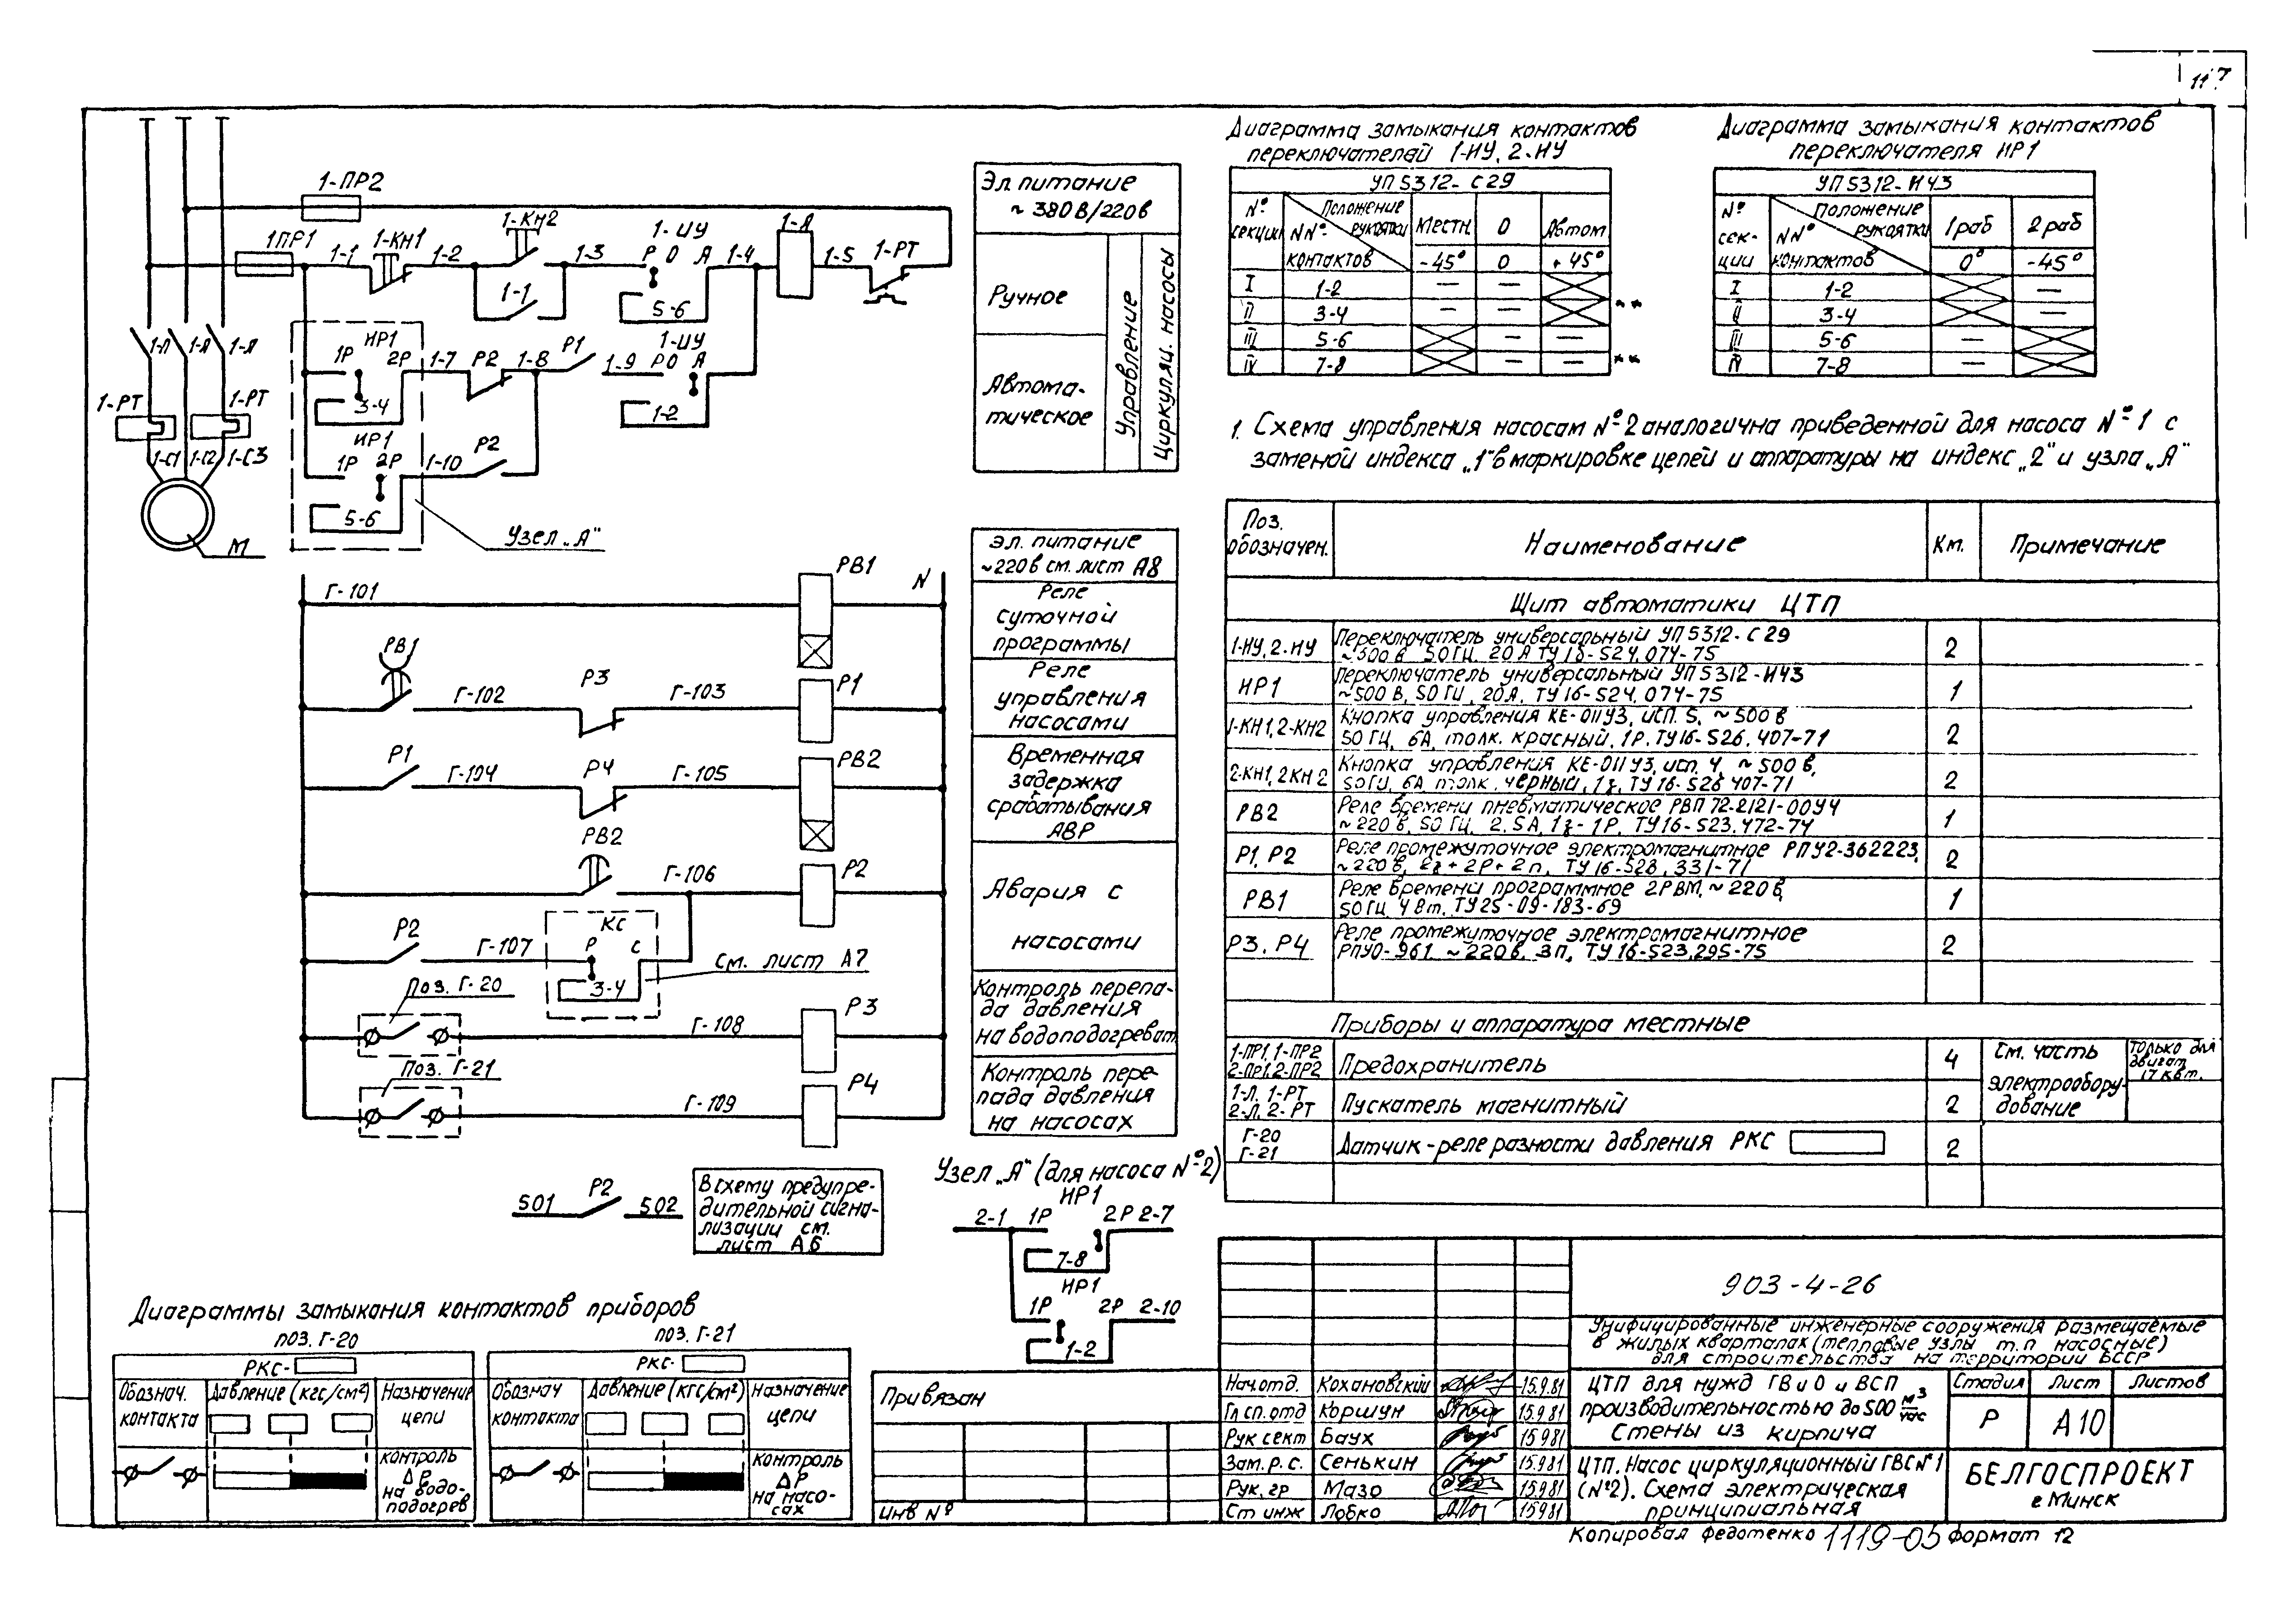 117
1-ПР2
1ПР1
1-1
1-КН1
1-2
1-КН2
1-1
1-3
1-ИУ
Р О А
5-6
1-4
1-Л
1-5
1-РТ
1-Л
1-Л
1-Л
1-РТ
1-РТ
1-С1
1-С2
1-С3
М
ИР1
1Р
2Р
3-4
1-7
Р2
1-8
Р1
1-9
1-ИУ
Р О А
1-2
ИР1
1Р
2Р
5-6
1-10
Р2
Узел „А"
Эл питание
~ 380 В/220в
Ручное
Автома-
тическое
Управление
Циркуляц. насосы
Г-101
РВ1
N
РВ1
Г-102
Р3
Г-103
Р1
Р1
Г-104
Р4
Г-105
РВ2
РВ2
Г-106
Р2
Р2
Г-107
КС
Р
С
3-4
См. лист А7
Поз. Г-20
Г-108
Р3
Поз. Г-21
Г-109
Р4
эл. питание
~220в см. лист А8
Реле
суточной
программы
Реле
управления
насосами
Временная
задержка
срабатывания
АВР
Авария с
насосами
Контроль перепа-
да давления
на водоподогреват.
Контроль пере-
пада давления
на насосах
501
Р2
502
В схему предупре-
дительной сигна-
лизации см.
лист А6
Узел „А" (для насоса №2)
ИР1
2-1
1Р
2Р
2-7
7-8
ИР1
1Р
2Р
2-10
1-2
Диаграммы замыкания контактов приборов
поз. Г-20
РКС-
Обознач.
контакта
Давление (кгс/см²)
Назначение
цепи
контроль
ΔР
на водо-
подогрев
поз. Г-21
РКС-
Обознач
контакта
Давление (кгс/см²)
Назначение
цепи
контроль
ΔР
на насо-
сах
Диаграмма замыкания контактов
переключателей 1-ИУ, 2-ИУ
УП5312-С29
№
секции
Положение
рукоятки
NN°
контактов
Местн
О
Автом
-45°
0
+45°
I
1-2
— —
II
3-4
— —
III
5-6
— —
IV
7-8
— —
Диаграмма замыкания контактов
переключателя ИР1
УП5312-И43
№
сек-
ции
Положение
рукоятки
NN°
контактов
1раб
2раб
0°
-45°
I
1-2
—
II
3-4
—
III
5-6
—
IV
7-8
—
1. Схема управления насосам №2 аналогична приведенной для насоса №1 с
заменой индекса „1" в маркировке цепей и аппаратуры на индекс „2" и узла „А"
Поз.
обозначен.
Наименование
Км.
Примечание
Щит автоматики ЦТП
1-ИУ, 2-ИУ
Переключатель универсальный УП5312-С29
~500 в 50 Гц. 20А ТУ16-524.074-75
2
ИР1
Переключатель универсальный УП5312-И43
~500 В, 50 Гц, 20А, ТУ16-524.074-75
1
1-КН1, 2-КН2
Кнопка управления КЕ-011У3, исп. 5, ~500 в
50 Гц, 6А, толк. красный, 1р. ТУ16-526.407-71
2
2-КН1, 2КН2
Кнопка управления КЕ-011У3, исп. 4, ~500 в,
50Гц, 6А толк. черный, 1з, ТУ16-526 407-71
2
РВ2
Реле времени пневматическое РВП72-2121-00У4
~220 в, 50 Гц, 2.5А, 1з-1р, ТУ16-523.472-74
1
Р1, Р2
Реле промежуточное электромагнитное РПУ2-362223,
~220 в, 2з+2р+2п, ТУ16-523.331-71
2
РВ1
Реле времени программное 2РВМ, ~220 в,
50 Гц 4 Вт, ТУ25-09-183-69
1
Р3. Р4
Реле промежуточное электромагнитное
РПУ0-961, ~220 в, 3п, ТУ16-523.295-75
2
Приборы и аппаратура местные
1-ПР1, 1-ПР2
2-ПР1, 2-ПР2
Предохранитель
4
См. часть
электрообору-
дование
Только для
двигат.
17 квт.
1-Л, 1-РТ
2-Л, 2-РТ
Пускатель магнитный
2
Г-20
Г-21
Датчик-реле разности давления РКС
2
903-4-26
Унифицированные инженерные сооружения размещаемые
в жилых кварталах (тепловые узлы т.п насосные)
для строительства на территории БССР
ЦТП для нужд ГВ и О и ВСП
производительностью до 500 м³/час
Стены из кирпича
Стадия
Лист
Листов
Р
А10
ЦТП. Насос циркуляционный ГВС №1
(№2). Схема электрическая
принципиальная
БЕЛГОСПРОЕКТ
г Минск
Нач.отд.
Кохановский
15.9.81
Гл сп.отд
Коршун
15.9.81
Рук сект
Баух
15.9.81
Зам. р. с.
Сенькин
15.9.81
Рук. гр
Мазо
15.9.81
Ст инж
Лобко
15.9.81
Привязан
Инв №
Копировал Федотенко
1119-05
формат 12